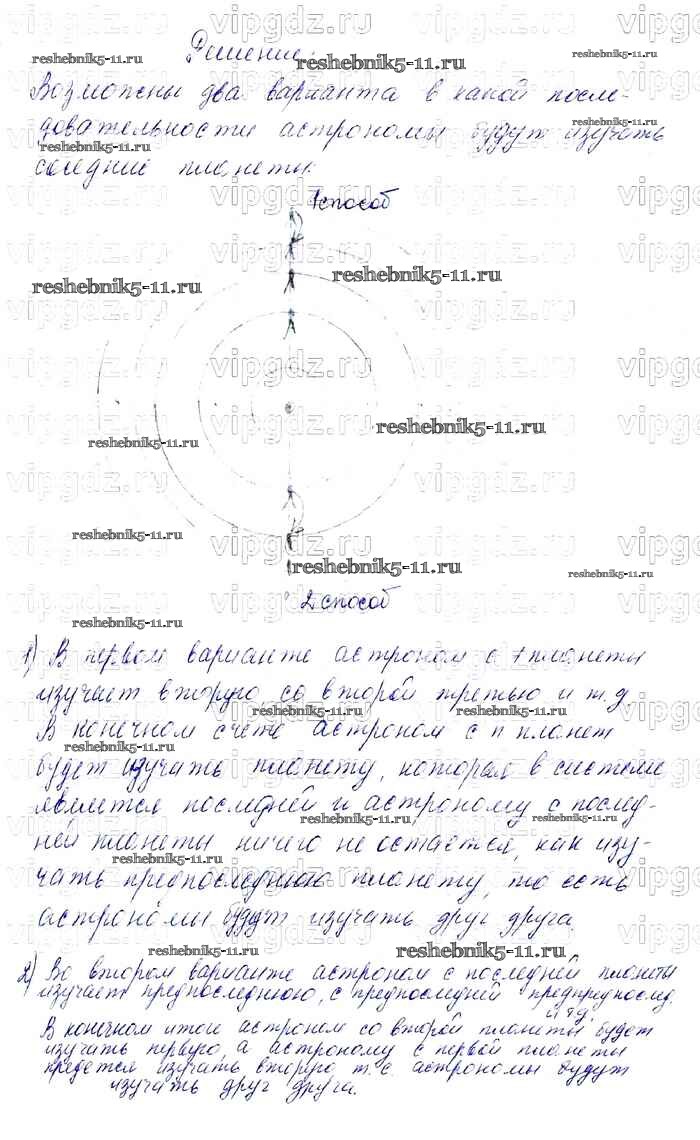 Решение:
Возможны два варианта в какой после-
довательности астрономы будут изучать
соседние планеты.
1 способ
2 способ
1) В первом варианте астроном с 1 планеты
изучает вторую со второй третью и т.д.
В конечном счете астроном с n планет
будет изучать планету, которая в системе
является последней и астроному с послед-
ней планеты ничего не остается, как изу-
чать предпоследнюю планету, то есть
астрономы будут изучать друг друга.
2) Во втором варианте астроном с последней планеты
изучает предпоследнюю, с предпоследней предпредпослед.
и т.д.
В конечном итоге астроном со второй планеты будет
изучать первую, а астроному с первой планеты
придется изучать вторую т.е. астрономы будут
изучать друг друга.
vipgdz.ru
reshebnik5-11.ru